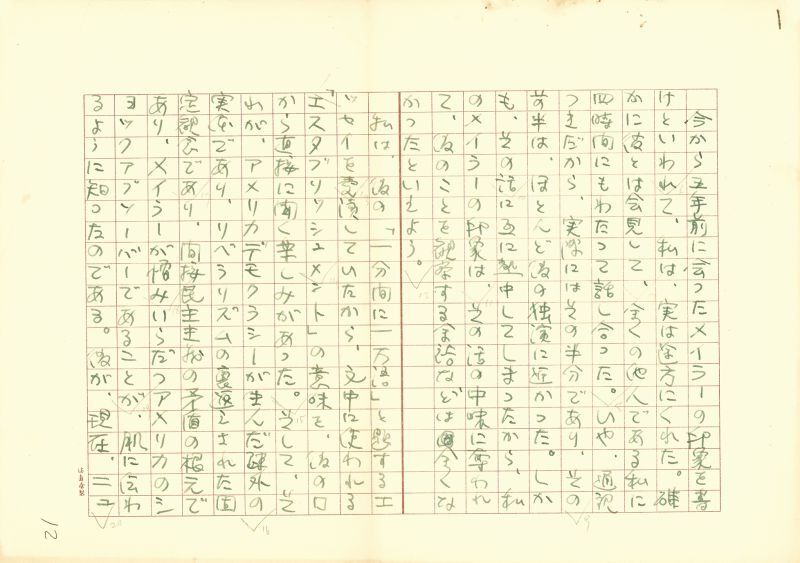 今から五年前に会ったメイラーの印象を書
けといわれて、私は、実は途方にくれた。確
かに彼とは会見して、全くの他人である私に
四時間にもわたって話し合った。いや、通訳
つきだから、実際にはその半分であり、その
前半は、ほとんど彼の独演に近かった。しか
も、その話に互に熱中してしまったから、私
のメイラーの印象は、その話の中味に奪われ
て、彼のことを観察する余裕などは全くな
かったといえよう。
私は、彼の「一分間に一万語」と題するエ
ッセイを愛読していたから、文中に使われる
「エスタブリッシュメント」の意味を、彼の口
から直接に聞く楽しみがあった。そして、そ
れが、アメリカデモクラシーがまんだ疎外の
実在であり、リベラリズムの裏返しされた固
定観念であり、間接民主主義の矛盾の根元で
あり、メイラーが憎みいらだつアメリカのシ
ョックアブソーバーであることが、肌に伝わ
るように知ったのである。彼が、現在、ニュ
12